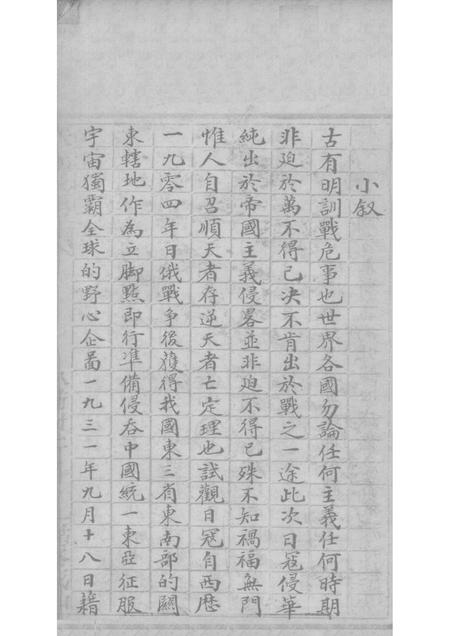 小叙
古有明訓戰危事也世界各國勿論任何主義任何時期
非迫於萬不得已决不肯出於戰之一途此次日寇侵華
純出於帝國主義侵畧並非迫不得已殊不知禍福無門
惟人自召順天者存逆天者亡定理也試觀日寇自西歷
一九零四年日俄戰爭後獲得我國東三省東南部的關
東轄地作為立脚點即行準備侵吞中國統一東亞征服
宇宙獨霸全球的野心企啚一九三一年九月十八日籍